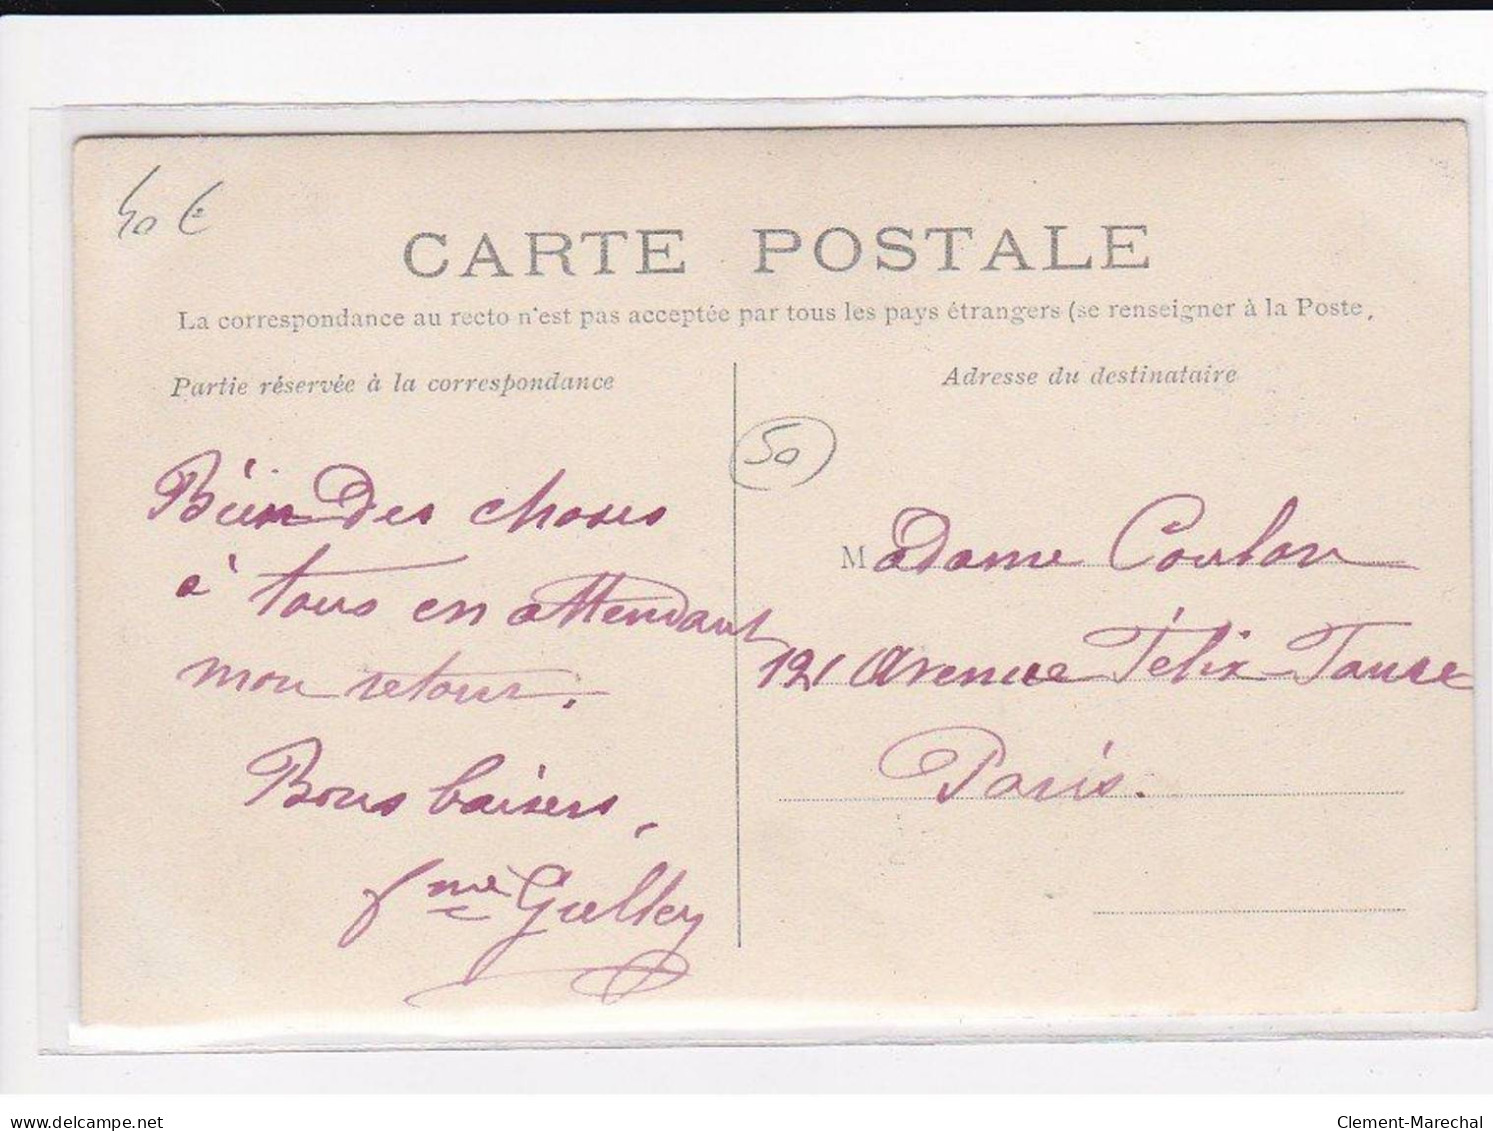 40 €
CARTE POSTALE
La correspondance au recto n'est pas acceptée par tous les pays étrangers (se renseigner à la Poste,
Partie réservée à la correspondance
Bien des choses
à tous en attendant
mon retour.
Bons baisers,
fme
Adresse du destinataire
50
Madame Coulon
121 Avenue Félix-Faure
Paris.
delcampe.net
Clement-Marechal